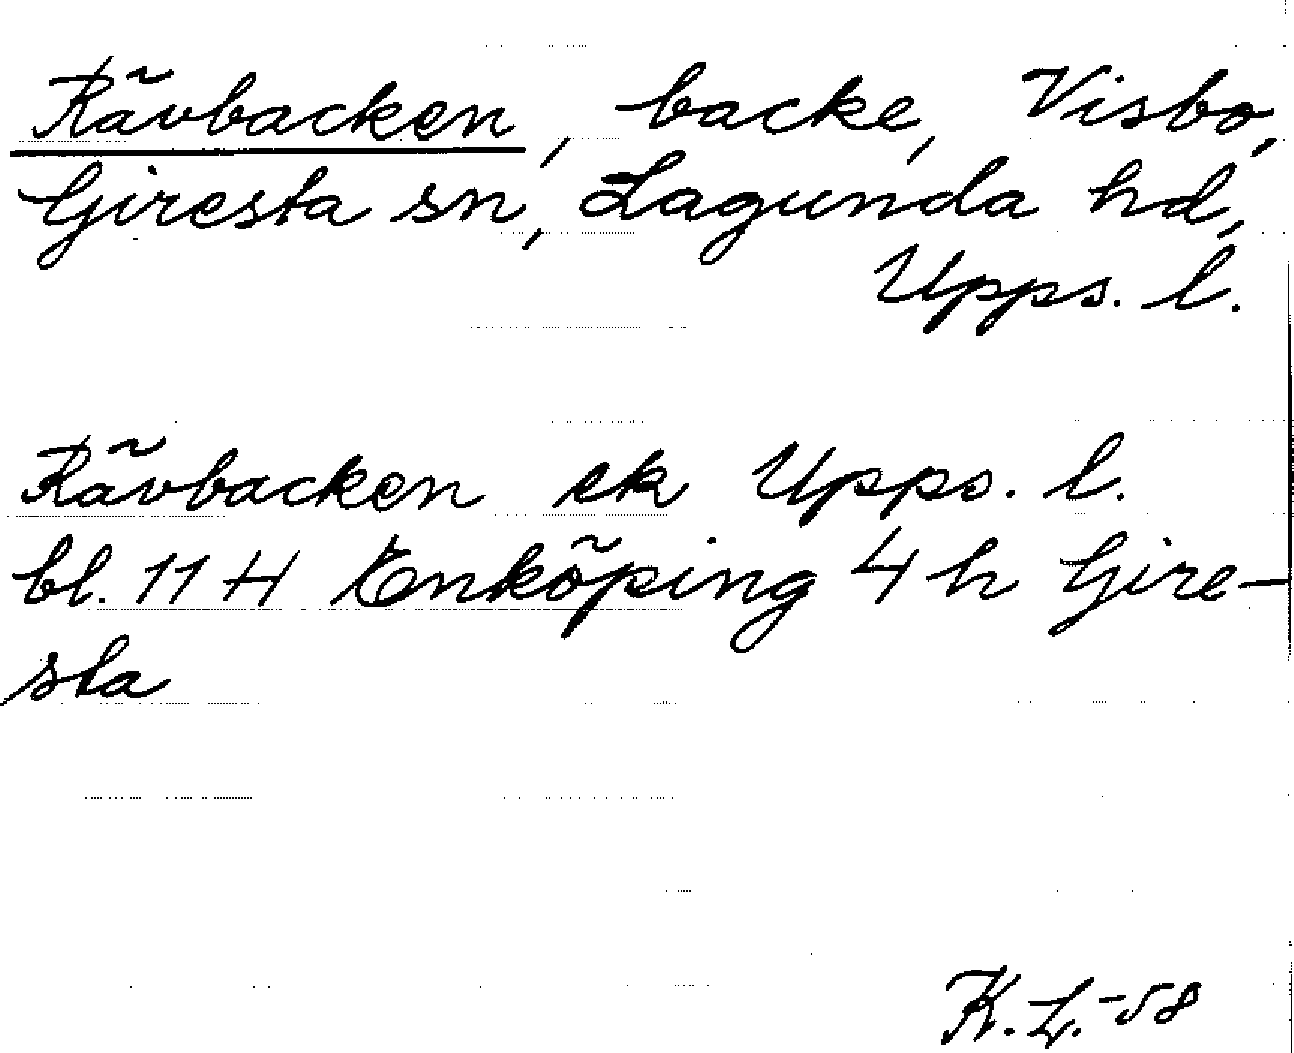 Rävbacken, backe, Visbo,
Giresta sn, Lagunda hd,
Upps. l.
Rävbacken ek Upps. l.
bl. 11 H Enköping 4 h Gire-
sta
K. L. -58